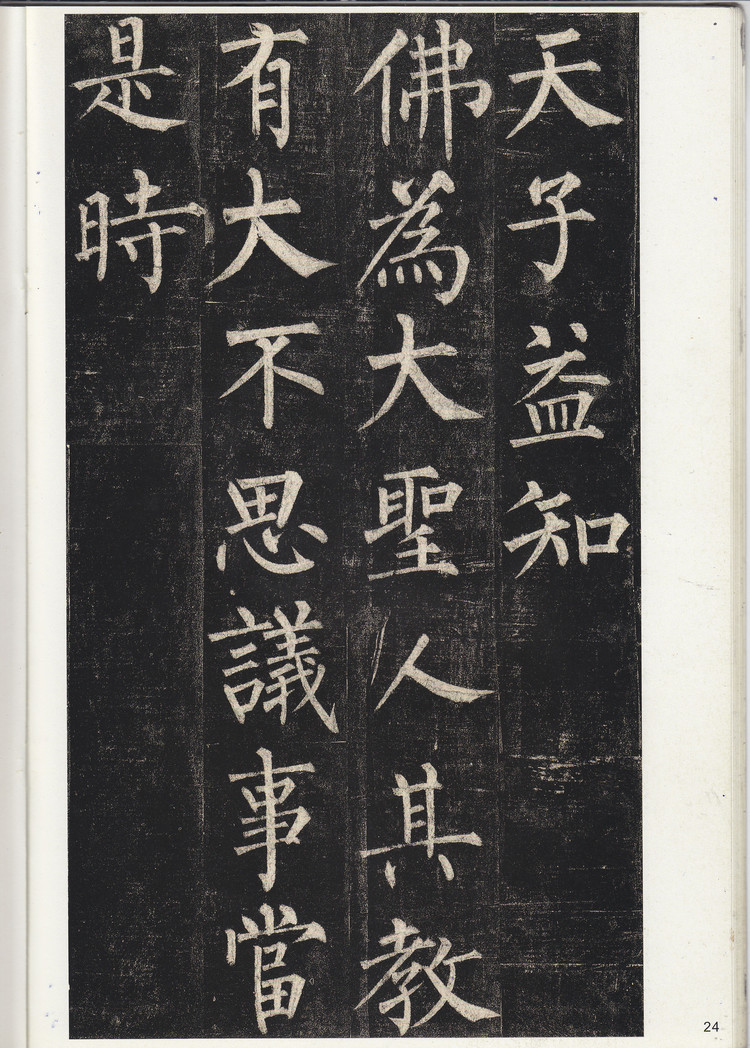 天子益知
佛為大聖人其教
有大不思議事當
是時
24